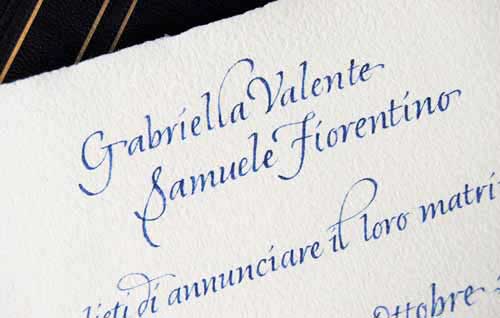 Gabriella Valente
Samuele Fiorentino
lieti di annunciare il loro matri
Ottobre